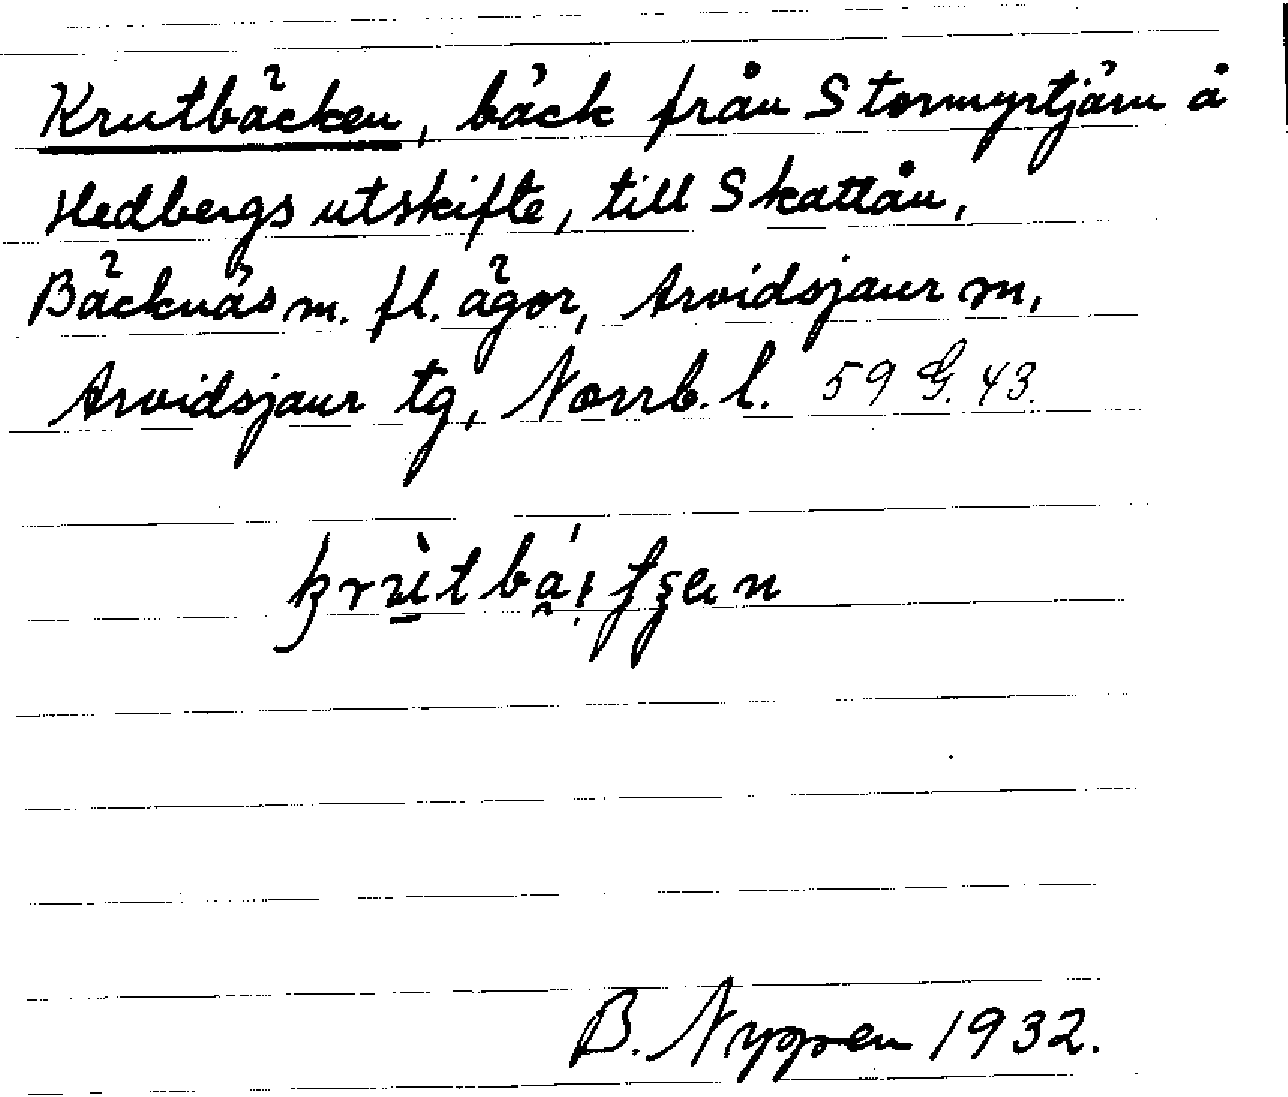 Krutbäcken, bäck från Stormyrtjärn å
Hedbergs utskifte, till Skattån,
Bäcknäs m. fl. ägor, Arvidsjaur sn,
Arvidsjaur tg, Norrb. l. 59 G. 43.
B. Nyppen 1932.